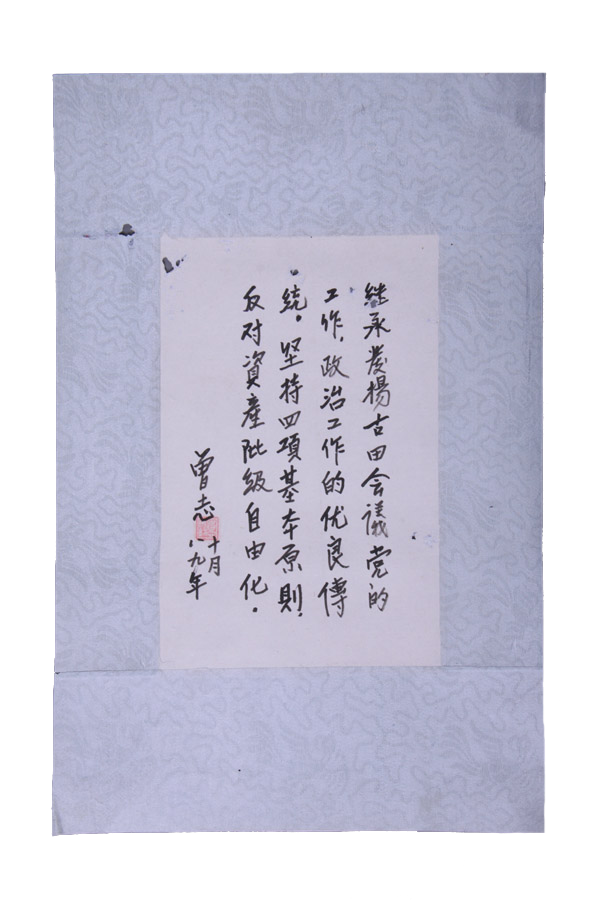 继承发揚古田会議党的
工作，政治工作的优良傳
统。坚持四項基本原則，
反对資産阶级自由化。
曾志
十月
八九年